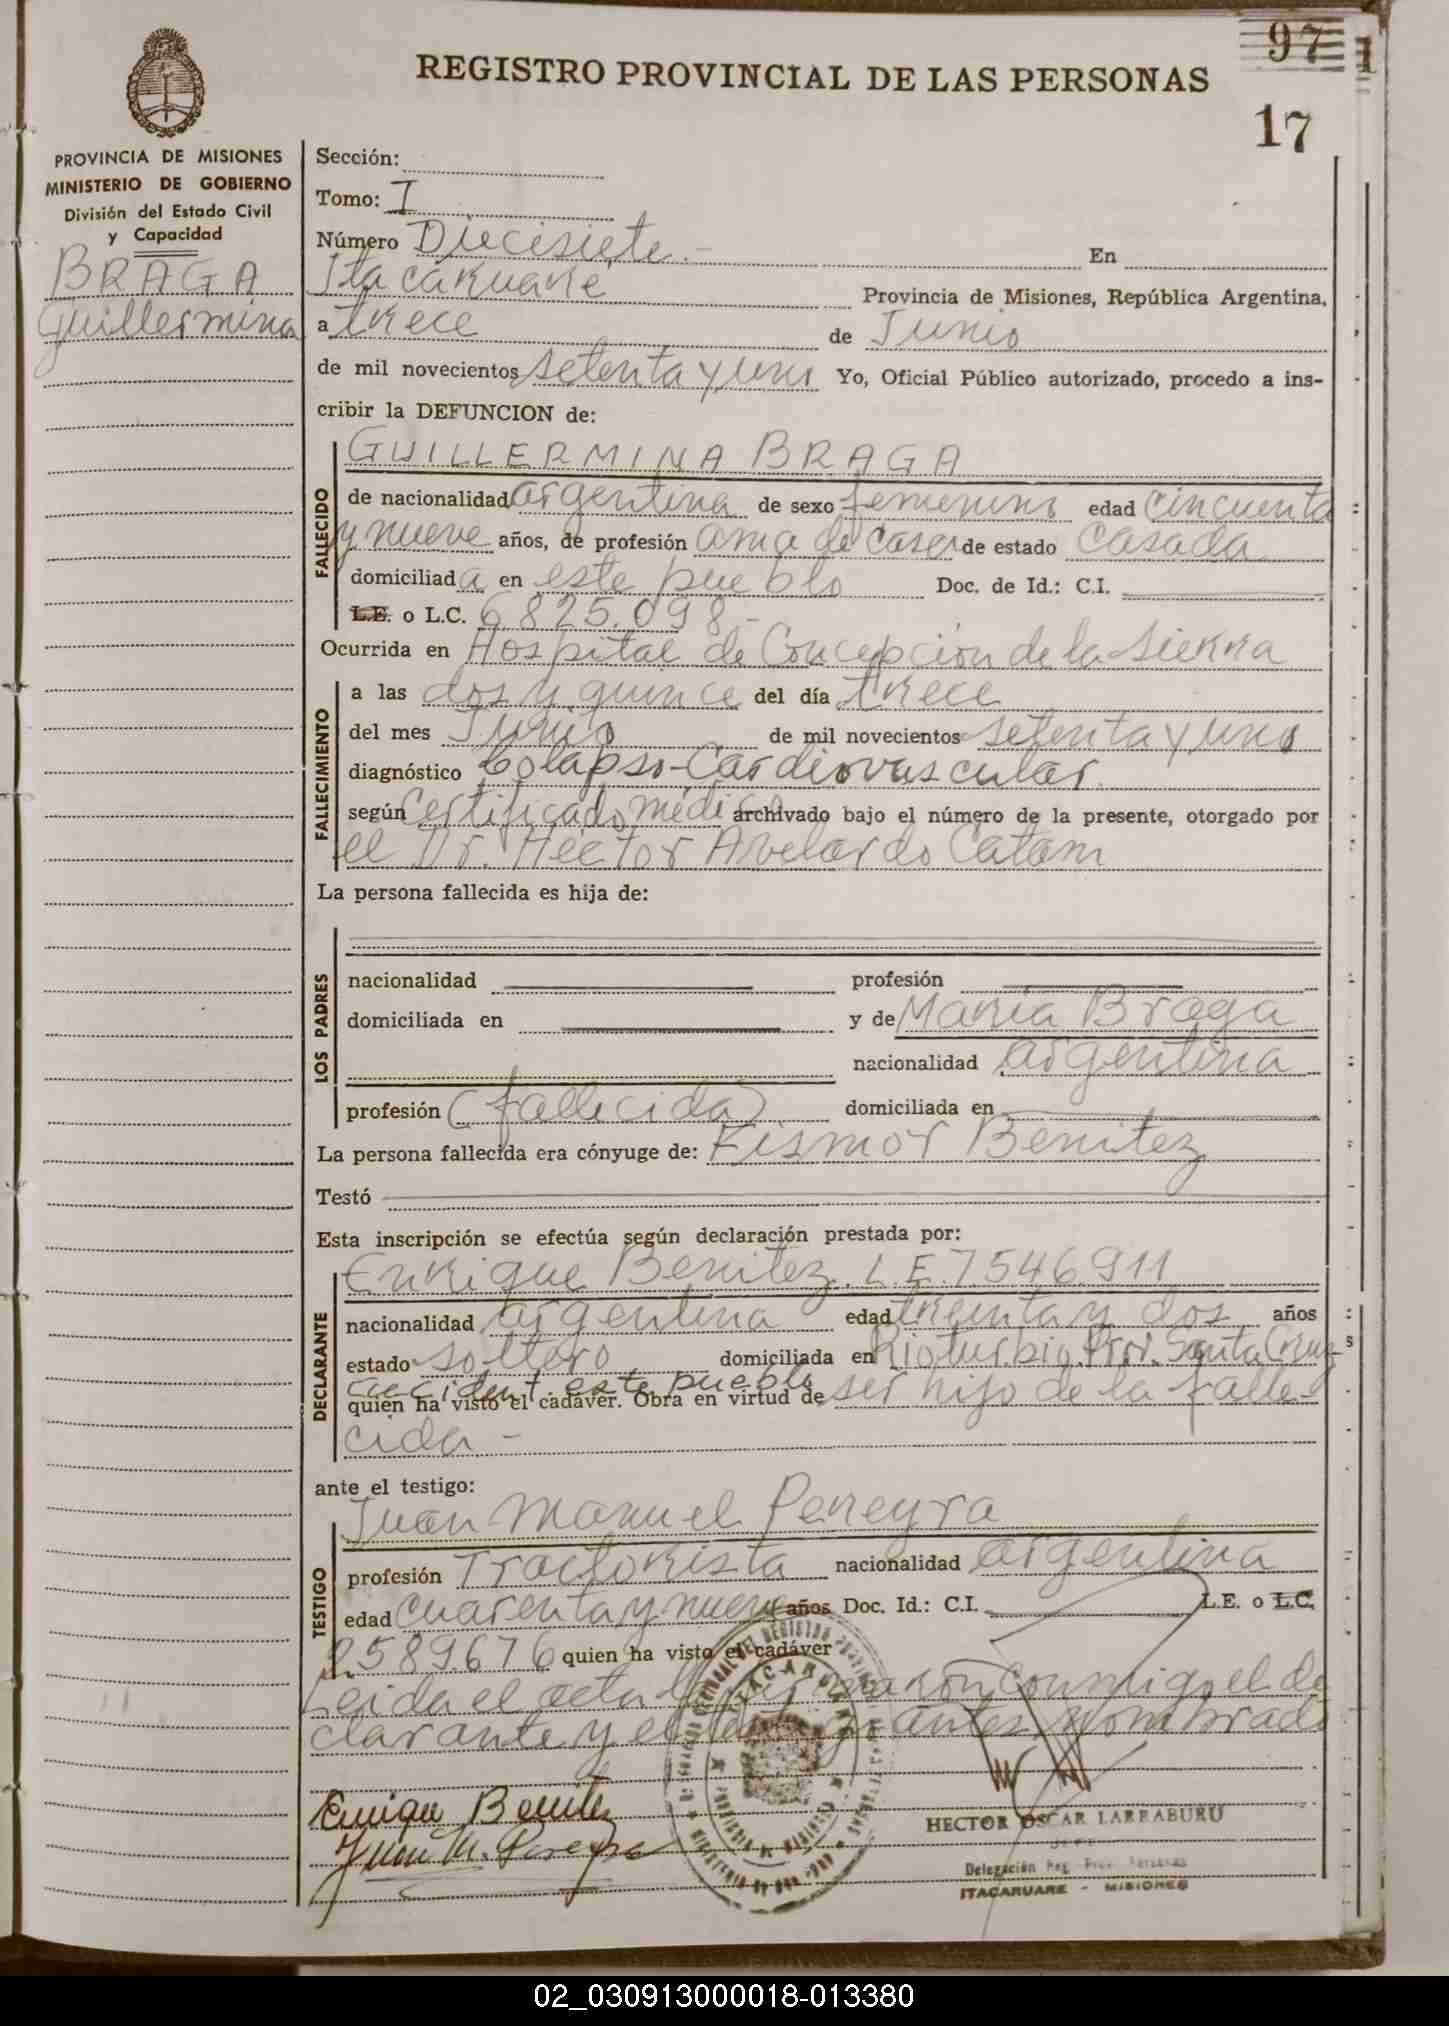 97
1
REGISTRO PROVINCIAL DE LAS PERSONAS
17
PROVINCIA DE MISIONES
MINISTERIO DE GOBIERNO
División del Estado Civil
y Capacidad
BRAGA
Guillermina
Sección:
Tomo: I
Número Diecisiete.- En
Itacaruaré Provincia de Misiones, República Argentina,
a trece de Junio
de mil novecientos setenta y uno Yo, Oficial Público autorizado, procedo a ins-
cribir la DEFUNCION de:
FALLECIDO
GUILLERMINA BRAGA
de nacionalidad argentina de sexo femenino edad cincuenta
y nueve años, de profesión ama de casa de estado casada
domiciliada en este pueblo Doc. de Id.: C.I.
L.E. o L.C. 6.825.098-
Ocurrida en Hospital de Concepción de la Sierra
FALLECIMIENTO
a las dos y quince del día trece
del mes Junio de mil novecientos setenta y uno
diagnóstico Colapso-Cardiovascular.
según Certificado médico archivado bajo el número de la presente, otorgado por
el Dr. Héctor Avelardo Catam
La persona fallecida es hija de:
LOS PADRES
nacionalidad profesión
domiciliada en y de María Braga
nacionalidad argentina
profesión (fallecida) domiciliada en
La persona fallecida era cónyuge de: Fismor Benitez
Testó
Esta inscripción se efectúa según declaración prestada por:
DECLARANTE
Enrique Benitez. L.E. 7546911
nacionalidad argentina edad treinta y dos años
estado soltero domiciliada en Rio turbio Prv. Santa Cruz
accident. este pueblo
quien ha visto el cadáver. Obra en virtud de ser hijo de la falle
cida -
ante el testigo:
TESTIGO
Juan Manuel Pereyra
profesión Tractorista nacionalidad argentina
edad cuarenta y nueve años Doc. Id.: C.I. L.E. o L.C.
2.589.676 quien ha visto el cadáver
Leida el acta la firmaron conmigo el de
clarante y el testigo antes nombrado
Enrique Benitez
Juan M. Pereyra
ITACARUARE
HECTOR OSCAR LARRABURU
Delegación Reg. Prov. Personas
ITACARUARE - MISIONES
02_030913000018-013380